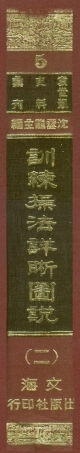 5
袁世凱
史料
彙刊
沈雲龍主編
訓練操法詳晰圖說
(二)
文海
出版社印行